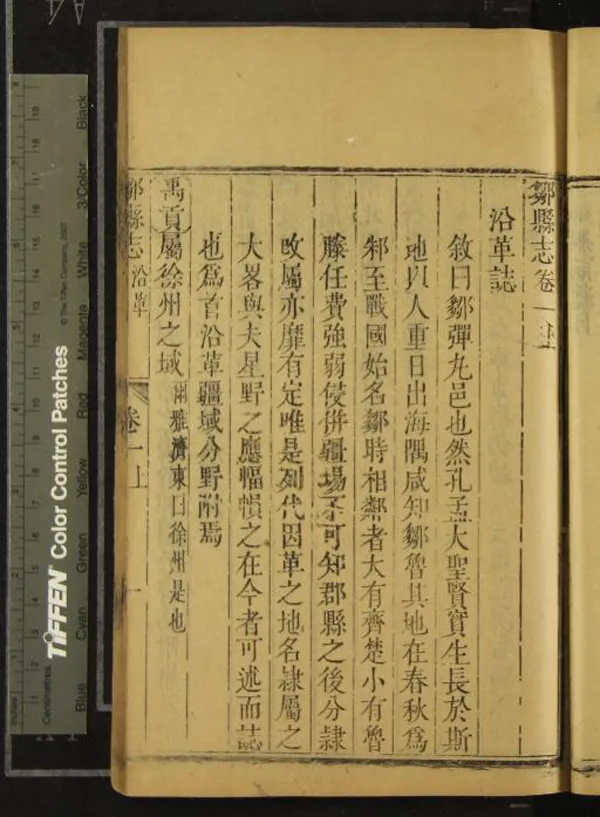 鄒縣志卷一上
沿革誌
敘曰鄒彈丸邑也然孔孟大聖賢實生長於斯
地以人重日出海隅咸知鄒魯其地在春秋為
邾至戰國始名鄒時相鄰者大有齊楚小有魯
滕任費強弱侵併疆場不可知郡縣之後分隸
改屬亦靡有定唯是列代因革之地名隸屬之
大畧與夫星野之應幅幀之在今者可述而誌
也為首沿革疆域分野附焉
禹貢屬徐州之域爾雅濟東曰徐州是也
鄒縣志 沿革 卷一上 一
TIFFEN Color Control Patches
© The Tiffen Company, 2007
Blue Cyan Green Yellow Red Magenta White 3/Color Black
Inches
Centimetres